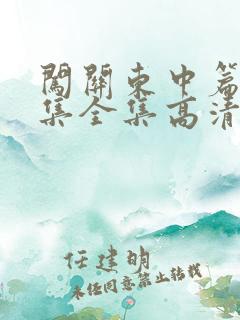 闖關東中篇
集全集高清
任建明
未经同意禁止转载